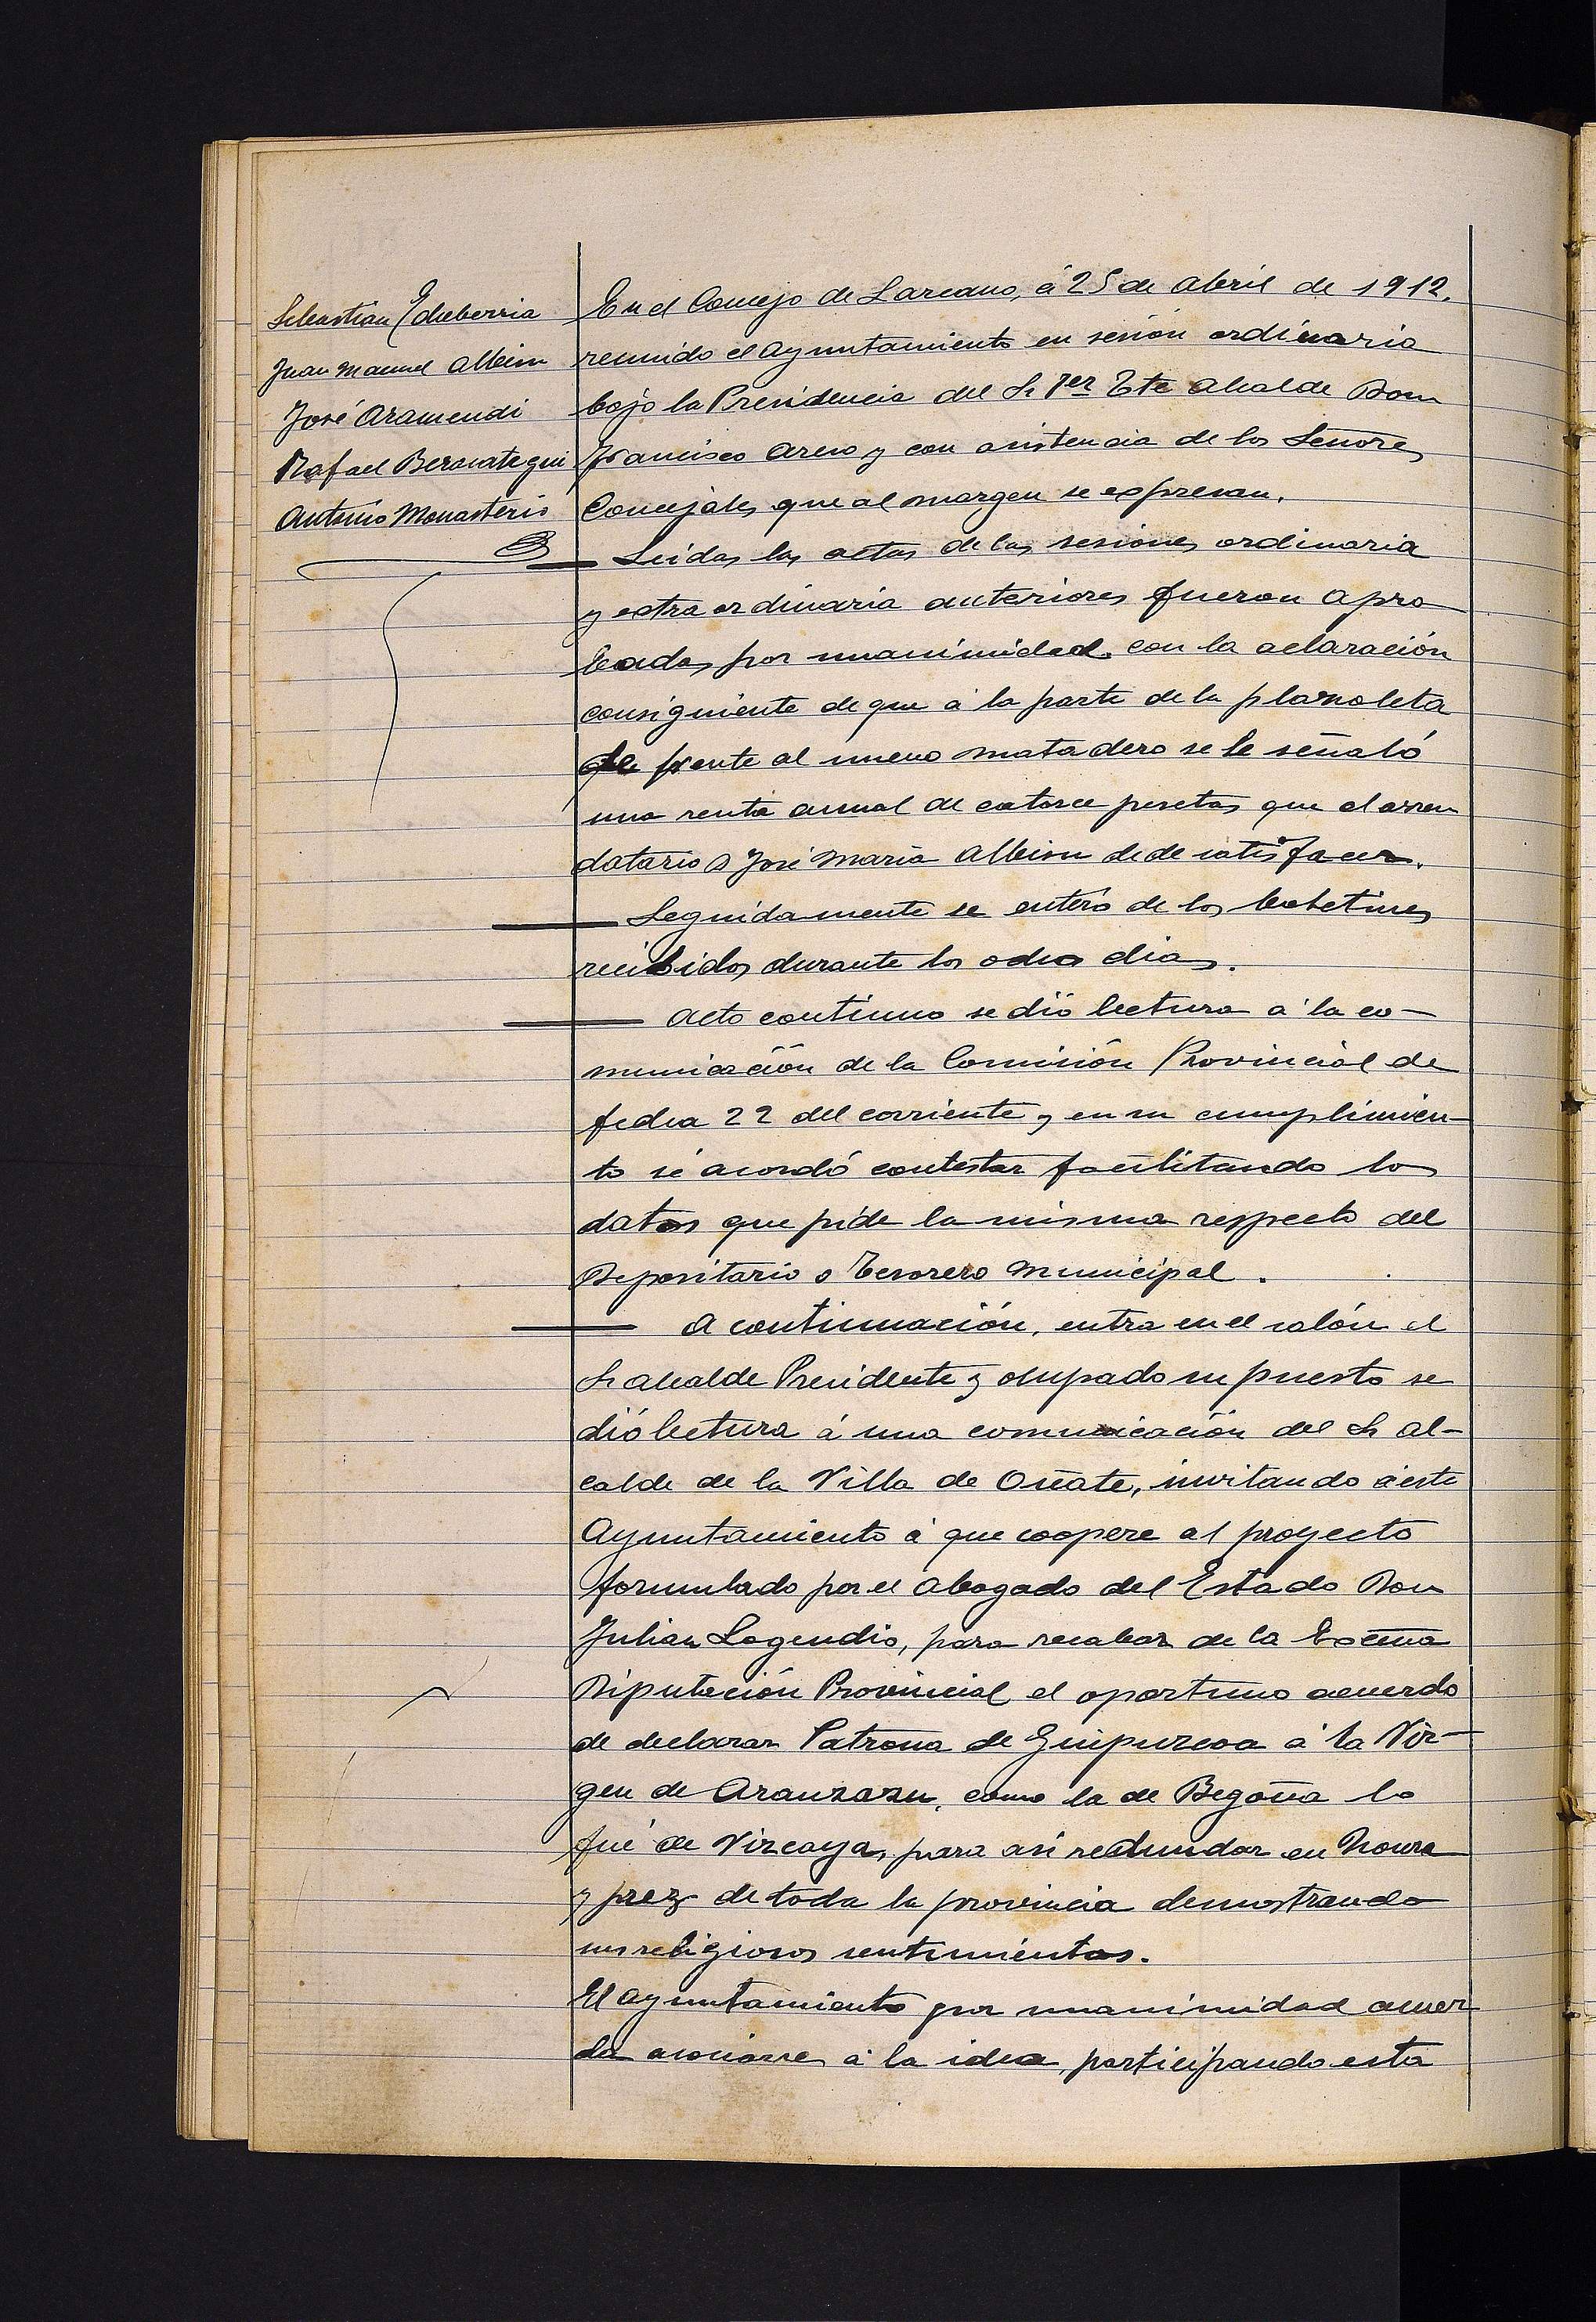 Sebastian Echeberria
Juan Manuel Albisu
José Aramendi
Rafael Berasategui
Antonio Monasterio
En el Concejo de Lazcano, á 25 de Abril de 1912.
reunido el Ayuntamiento en sesión ordinaria
bajo la Presidencia del Sr 1er Tte Alcalde Don
Francisco y con asistencia de los Señores
Concejales que al margen se expresan.
Leidas las actas de las sesiones ordinaria
y extraordinaria anteriores fueron apro
badas por unanimidad con la aclaración
consiguiente de que á la parte de la plazoleta
de frente al nuevo matadero se le señaló
una renta anual de catorce pesetas que el arren
datario D José Maria Albisu dede satisfacer.
Seguidamente se enteró de los boletines
recibidos durante los ocho dias.
Acto continuo se dió lectura á la co-
municación de la Comisión Provincial de
fecha 22 del corriente y en su cumplimien-
to se acordó contestar facilitando los
datos que pide la misma respecto del
Depositario o Tesorero Municipal.
A continuación, entra en el salón el
Sr Alcalde Presidente y ocupado su puesto se
dió lectura á una comunicación del Sr Al-
calde de la Villa de Oñate, invitando á este
Ayuntamiento á que coopere al proyecto
formulado por el Abogado del Estado Don
Julian Logendio, para recabar de la Excma
Diputación Provincial el oportuno acuerdo
de declarar Patrona de Guipuzcoa á la Vir-
gen de Aranzazu, como la de Begoña lo
fué de Vizcaya, para asi redundar en honra
y prez de toda la provincia demostrando
sus religiosos sentimientos.
El Ayuntamiento por unanimidad acuer
da asociarse á la idea, participando esta